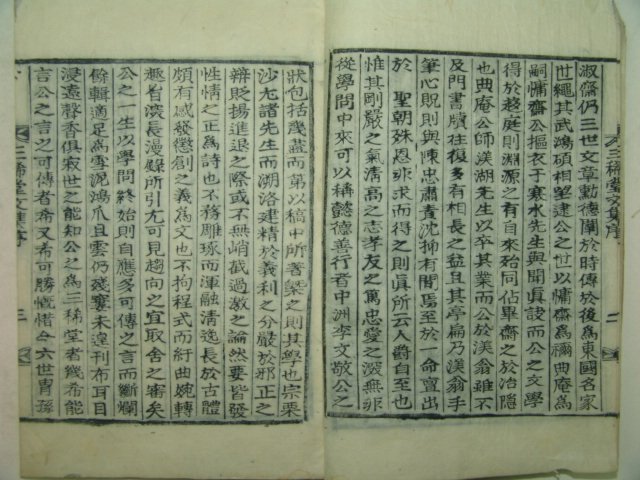 淑齋仍三世文章勳德闡於時傳於後爲東國名家
世繩其武鴻碩相望逮公之世以慵齋爲禰典庵爲
嗣慵齋公摳衣于寒水先生與聞眞詮而公之文學
得於趍庭則淵源之有自來殆同佔畢齋之於冶隱
也典庵公師渼湖先生以卒其業而公於渼翁雖不
及門書牘往復多有相長之益且其亭扁乃渼翁手
筆心貺則與陳忠肅責沈抑有間焉至於 命實出
於 聖朝殊恩非求而得之則眞所云人爵自至也
惟其剛嚴之氣淸高之志孝友之篤忠愛之深無非
從學問中來可以稱懿德善行者中洲李文敬公之
三稀堂文集序
二
狀包括幾盡而第以稿中所著槩之則其學也宗栗
沙尤諸先生而溯洛建精於義利之分嚴於邪正之
辨貶揚進退之際或不無峭截過激之論然要皆發
性情之正爲詩也不務雕琢而渾融淸逸長於古體
頗有感發懲創之義爲文也不拘程式而紆曲婉轉
趣旨深長漫錄所引尤可見趨向之宜取舍之審矣
公之一生以學問終始則自應多可傳之言而斷爛
餘輯適足爲雪泥鴻爪且雲仍殘蹇未遑刊布耳目
浸遠聲香俱寂世之能知公之爲三稀堂者幾希能
言公之言之可傳者希又希可勝慨惜今六世胄孫
三稀堂文集序
二